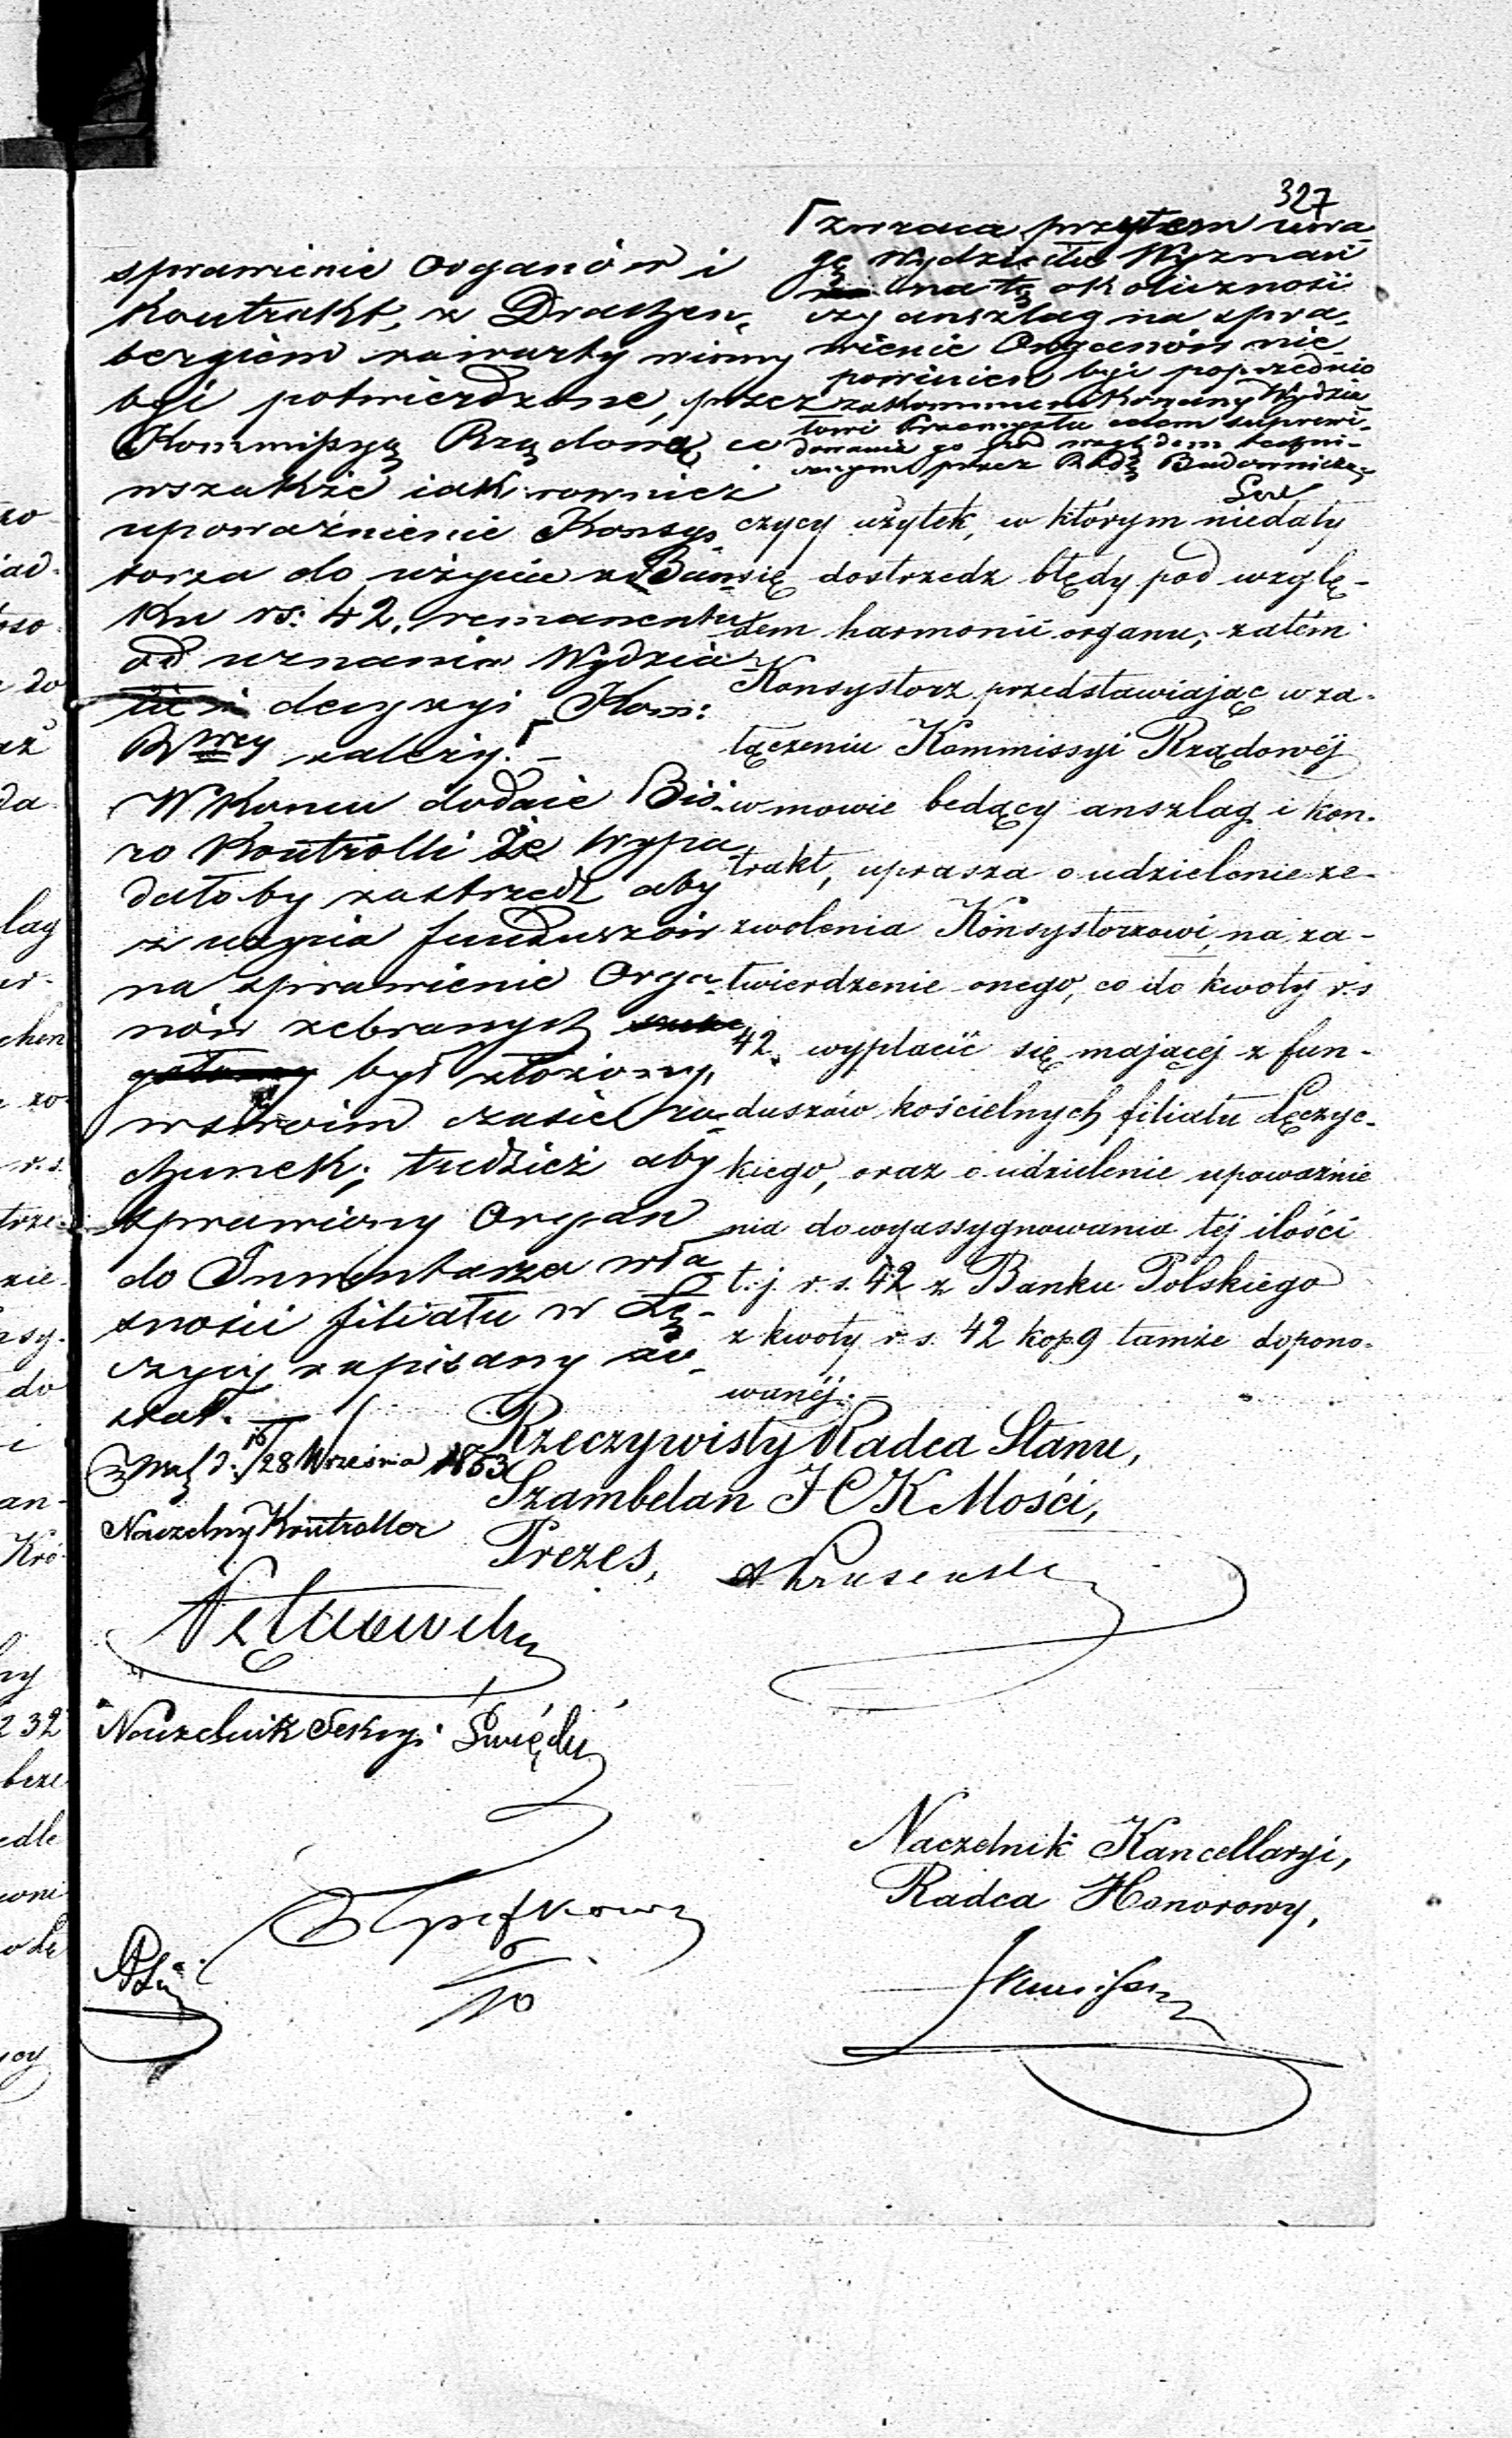 327
sprawienie Organów i
Kontrakt, z Drachen-
bergiem zawarty winny
być potwierdzone, przez
Kommissyą Rządową, co
wszakże iak równiez
upoważnienie Konsys
torza do użycia z Ban-
ku rs: 42, remanentu
od uznania Wydzia
decyzyi Kom:
Rwey zależy. Γ –
W Koncu dodaie Biō-
ro Kontrolli że wypa
dało by zastrzedz aby
z użycia funduszów
na sprawienie Orga-
nów zebranych
był złożony,
w swoim czasie ra-
chunek; tudzież aby
sprawiony Organ
do Inwentarza wła
sności filiału w Łę-
czycy zapisany zo-
stał. —
d. 16/28 Września 1863
Naczelny Kontroller
Naczelnik Sekcyi
6/10
Γ zwraca przytem uwa
gę Wydziału Wyznań
na tę okoliczność
czy anszlag na spra-
wienie Organów nie
powinien być poprzednio
zakommunikowany Wydzia
łowi Przemysłu celem superrewi-
dowania go pod względem techni-
cznym przez Radę Budowniczą
czycy użytek, w którym niedały
się dostrzedz błędy pod wzglę-
dem harmonii organu; zatém
Konsystorz przedstawiając w za-
łączeniu Kommissyi Rządowéj
w mowie bedący anszlag i kon-
trakt, uprasza o udzielenie ze-
zwolenia Konsystorzowi, na za-
twierdzenie onego, co do kwoty r.s
42. wypłacić się mającéj z fun-
duszów kościelnych filiału Łęczyc-
kiego, oraz o udzielenie upoważnie
nia do wyassygnowania téj ilości
t.j. r.s. 42 z Banku Polskiego
z kwoty r.s. 42 kop. 9 tamże depono-
wanéj. –
Rzeczywisty Radca Stanu,
Szambelan J C K Mości,
Prezes,
Naczelnik Kancellaryi,
Radca Honorowy,